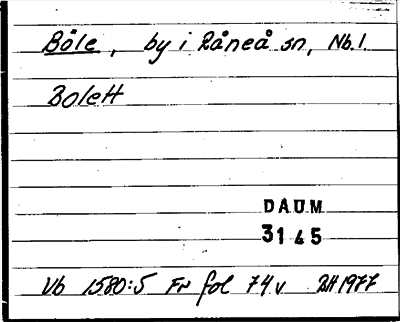 Böle, by i Råneå sn, Nb. l.
Bolett
DAUM
3145
Vb 1580:5 Fr fol 74 v RH 1977